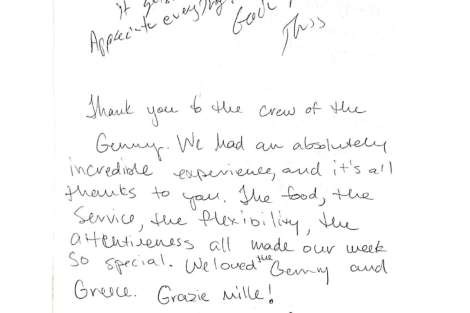 it
Appreciate everything
Thank you to the crew of the
Genny. We had an absolutely
incredible experience, and it's all
thanks to you. The food, the
Service, the flexibility, the
attentiveness all made our week
so special. We loved the Genny and
Greece. Grazie mille!